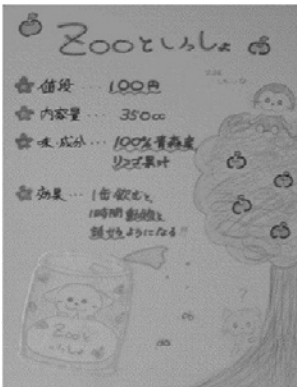 Zooといっしょ
値段…100円
内容量…350cc
味・成分…100%青森産
リンゴ果汁
効果…1缶飲むと、
1時間動物と
話せるようになる!!
?
Zooと
いっしょ